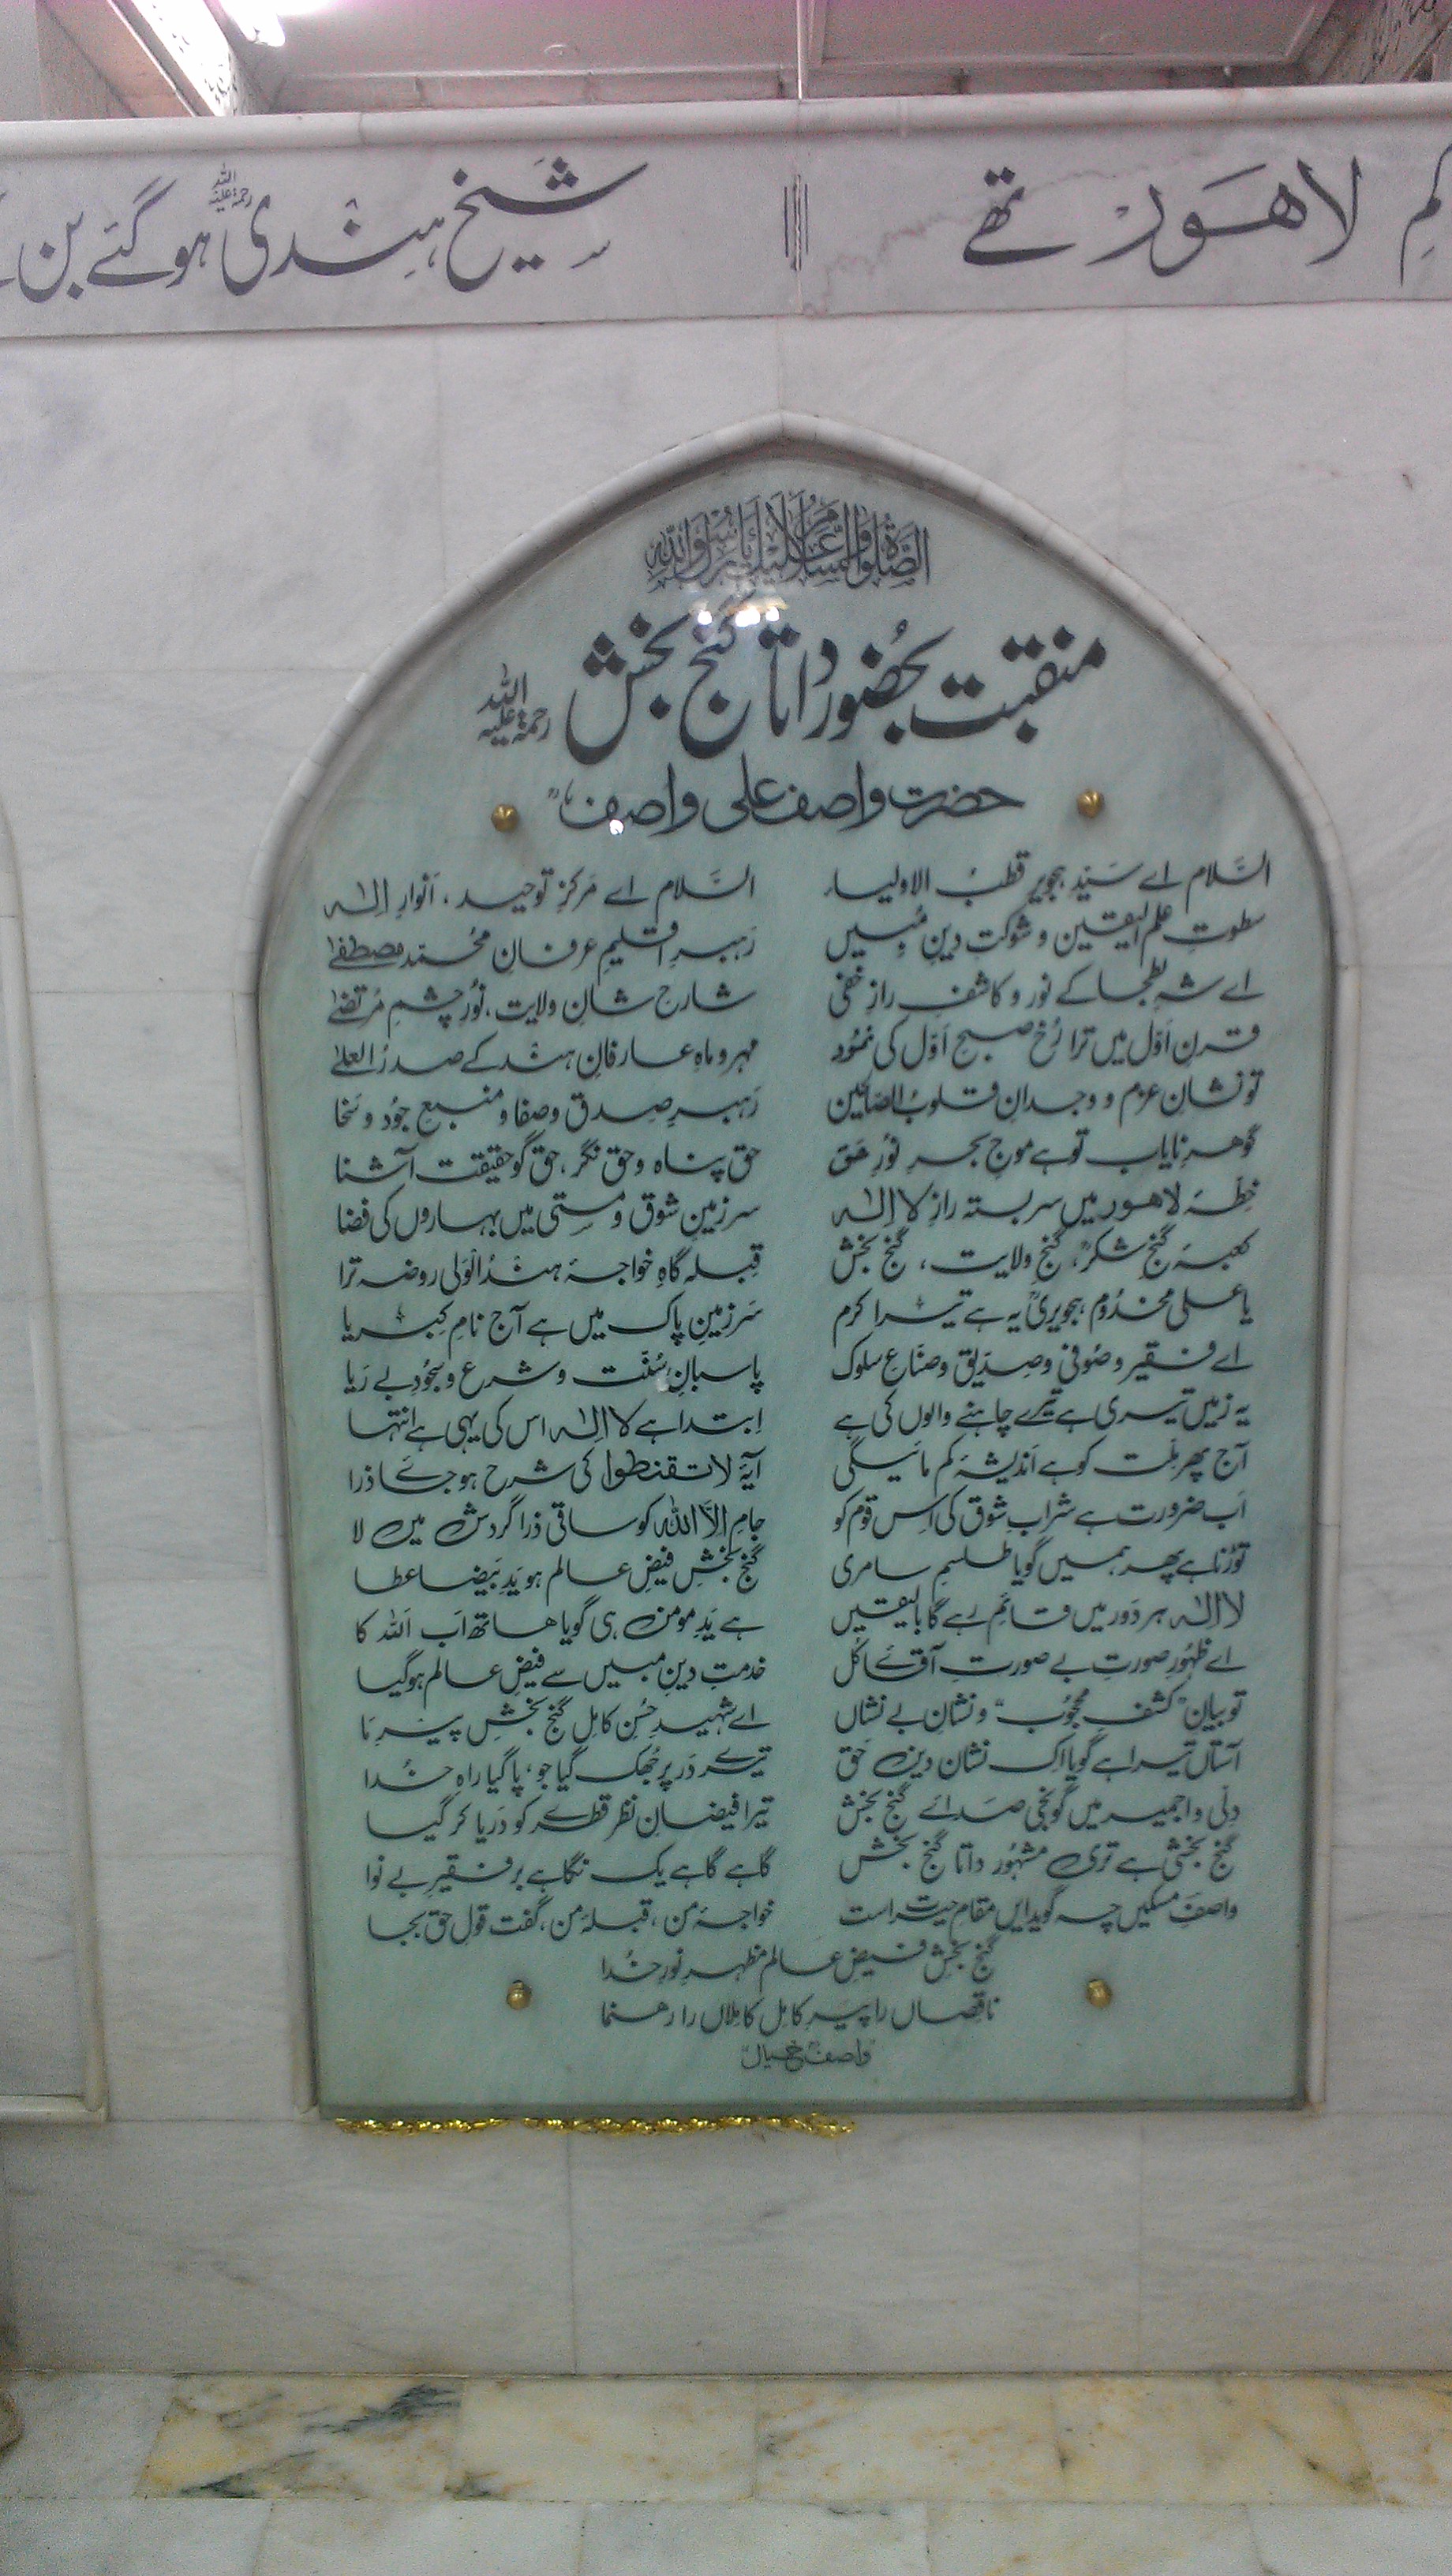 لاھَور تھے
شیخ ہندی رحمۃ اللہ علیہ ہو گئے بن
الصلوٰۃ والسلام علیک یا رسول اللہ
منقبت بحضور داتا گنج بخش رحمۃ اللہ علیہ
حضرت واصف علی واصفؒ
السّلام اے سیّدِ ہجویر قطبُ الاولیاء السّلام اے مرکزِ توحید، اَنوارِ اِلٰہ
سطوتِ علم الیقین و شوکتِ دینِ مُبیں رَہبرِ اقلیمِ عرفانِ محمّد مصطفےٰ
اے شہِ بطحا کے نور و کاشفِ رازِ خفی شارحِ شانِ ولایت، نُورِ چشمِ مُرتضےٰ
قرنِ اَوّل میں ترا رُخ صبحِ اَوّل کی نمُود مہر و ماہِ عارفانِ ہند کے صدرُ العلےٰ
تو نشانِ عزم و وجدانِ قلوبُ الصالحین رَہبرِ صدق و صفا و منبعِ جُود و سَخا
گوھرِ نایاب تو ہے موجِ بحرِ نُورِ حَق حق پناہ و حق نگر، حق گو حقیقت آشنا
خطّۂ لاھور میں سربستہ رازِ لا اِلٰہ سرزمینِ شوق و مستی میں بہاروں کی فضا
کعبۂ گنجِ شکرؒ، گنجِ ولایت، گنج بخش قِبلہ گاہِ خواجۂ ہندُ الوَلی روضہ ترا
یا علی مخدُوم ہجویریؒ یہ ہے تیرا کرم سَرزمینِ پاک میں ہے آج نامِ کِبریا
اے فقیر و صُوفی و صِدّیق و صنّاعِ سلوک پاسبانِ سُنّت و شرع و سجُودِ بے رَیا
یہ زمیں تیری ہے تیرے چاہنے والوں کی ہے اِبتدا ہے لا اِلٰہ اس کی یہی ہے انتہا
آج پھر مِلّت کو ہے اَندیشۂ کم مائیگی آیۂ لا تقنطوا کی شرح ہو جائے ذرا
اَب ضرورت ہے شرابِ شوق کی اِس قوم کو جامِ اِلَّا اللہ کو ساقی ذرا گردش میں لا
توڑنا ہے پھر ہمیں گویا طلسمِ سامری گنج بخشِ فیضِ عالم ہو یَدِ بَیضا عطا
لا اِلٰہ ہر دَور میں قائم رہے گا بالیقیں ہے یَدِ مومن ہی گویا ھاتھ اَب اللہ کا
اے ظہُورِ صورتِ بے صورتِ آقائے کُل خدمتِ دینِ مبیں سے فیضِ عالم ہو گیا
تو بیانِ "کشفِ محجُوب" و نشانِ بے نشاں اے شہیدِ حُسنِ کامِل گنج بخشِ پیرِ مَا
آستاں تیرا ہے گویا اک نشانِ دینِ حَق تیرے دَر پر جُھک گیا جو، پا گیا راہِ خُدا
دِلّی و اجمیر میں گونجی صَدائے گنج بخش تیرا فیضانِ نظر قطرے کو دَریا کر گیا
گنج بخشی ہے تری مشہُور داتا گنج بخش گاہے گاہے یک نگاہے بر فقیرِ بے نوا
واصفِ مسکیں چہ گوید ایں مقامِ حیرت است خواجۂ من، قبلۂ من، گفت قولِ حق بجا
گنج بخشِ فیضِ عالم مظہرِ نورِ خُدا
ناقصاں را پیرِ کامِل کامِلاں را رھنما
واصفؒ خیال